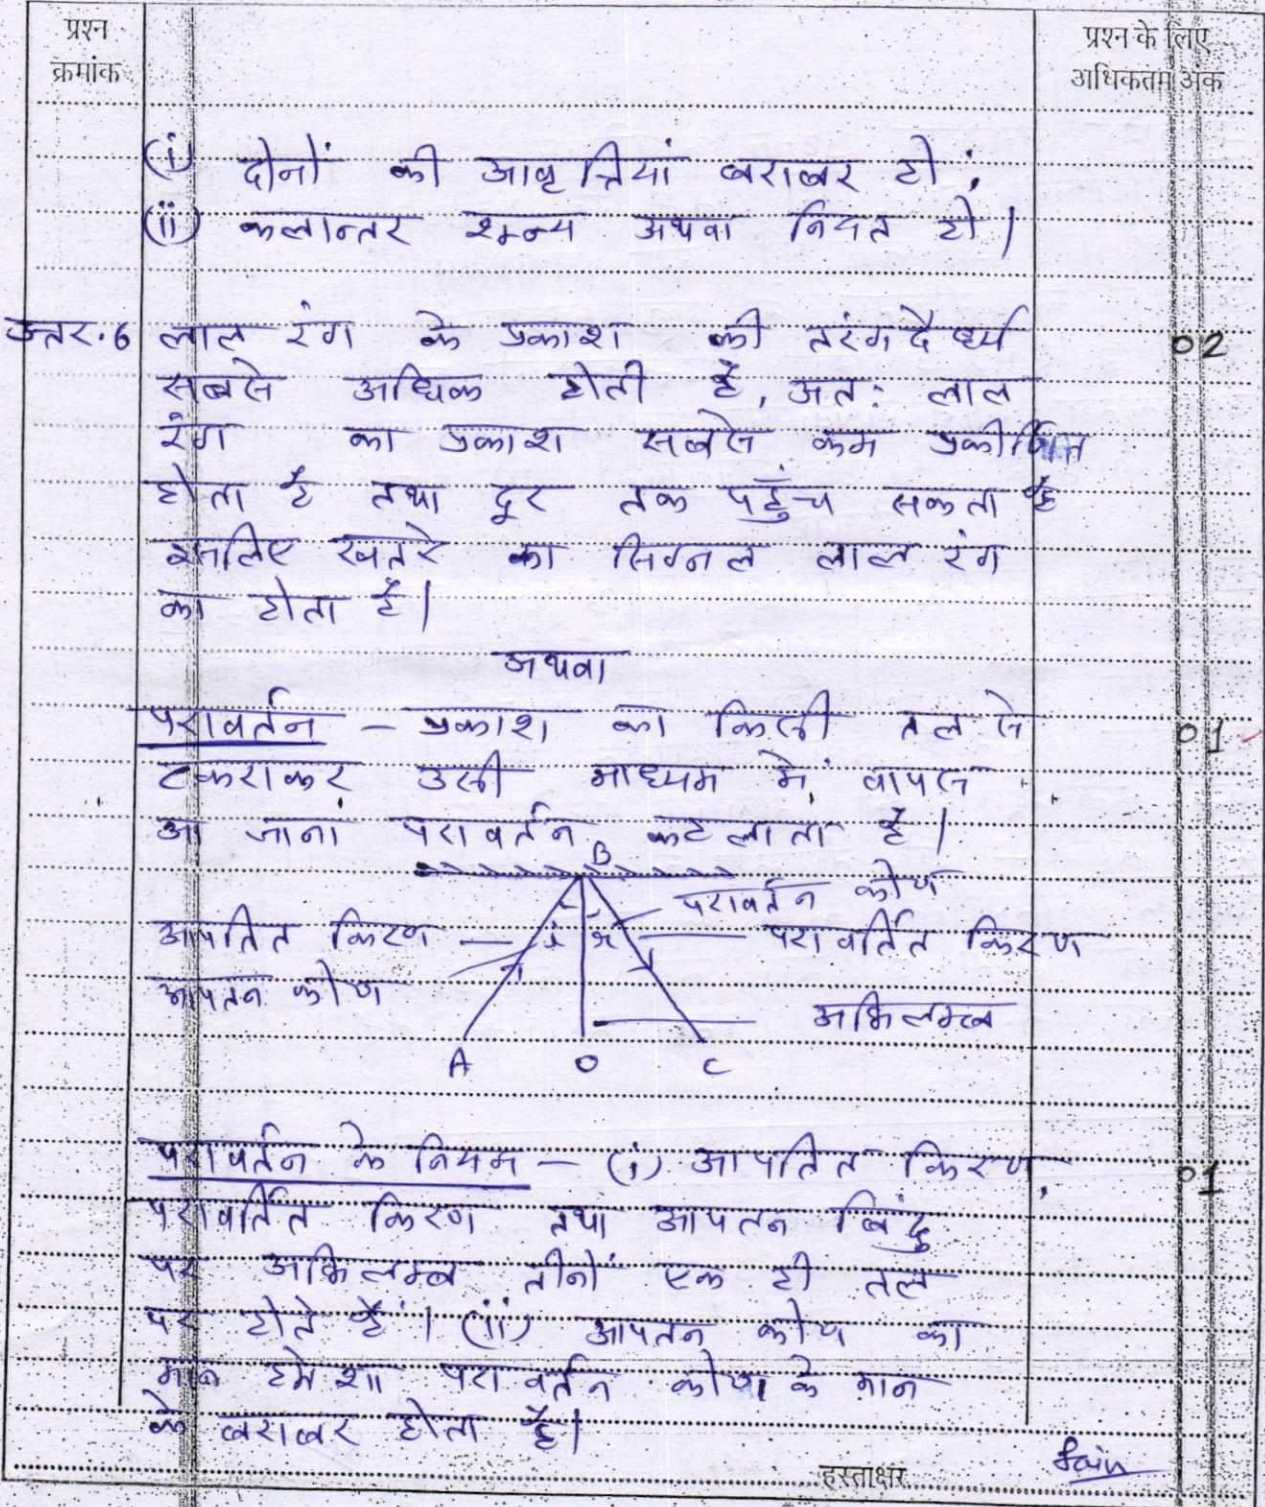 प्रश्न क्रमांक
प्रश्न के लिए अधिकतम अंक
(i) दोनों की आवृत्तियां बराबर हो;
(ii) कलान्तर शून्य अथवा नियत हो।
उत्तर.6 लाल रंग के प्रकाश की तरंगदैर्ध्य 02
सबसे अधिक होती है, अत: लाल
रंग का प्रकाश सबसे कम प्रकीर्णित
होता है तथा दूर तक पहुँच सकता है
इसलिए खतरे का सिग्नल लाल रंग
का होता है।
अथवा
परावर्तन - प्रकाश का किसी तल से 01
टकराकर उसी माध्यम में वापस
आ जाना परावर्तन कहलाता है।
B
परावर्तन कोण
आपतित किरण i r परावर्तित किरण
आपतन कोण
अभिलम्ब
A O C
परावर्तन के नियम - (i) आपतित किरण, 01
परावर्तित किरण तथा आपतन बिंदु
पर अभिलम्ब तीनों एक ही तल
पर होते हैं। (ii) आपतन कोण का
मान हमेशा परावर्तन कोण के मान
के बराबर होता है।
हस्ताक्षर